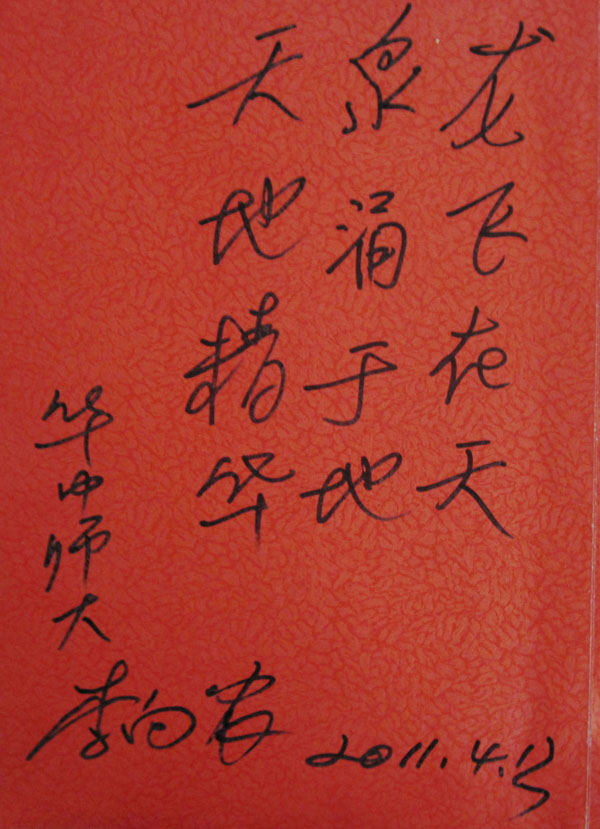 龙飞在天
泉涓于地
天地精华
华中师大
李向农
2011.4.